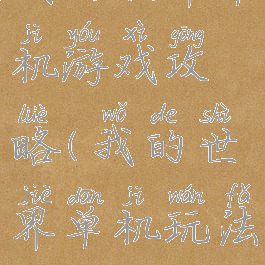 jī yóu xì gōng
机游戏攻
lüè wǒ de shì
略(我的世
jiè dān jī wán fǎ
界单机玩法